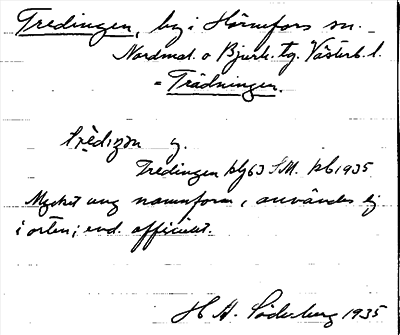 Tredingen, by i Hörnefors sn.
Nordmal. o Bjurh. tg. Västerb. l.
= Trädningen.
trèdıŋən y.
Tredingen blg 63 J.M. bb 1935.
Mycket ung namnform, användes ej
i orten; end. officiellt.
H A. Söderberg 1935